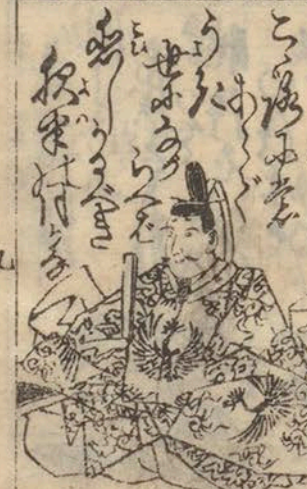 こゝろにも
あらで
うき
世になが
らへば
恋しかるべき
夜半の月かな